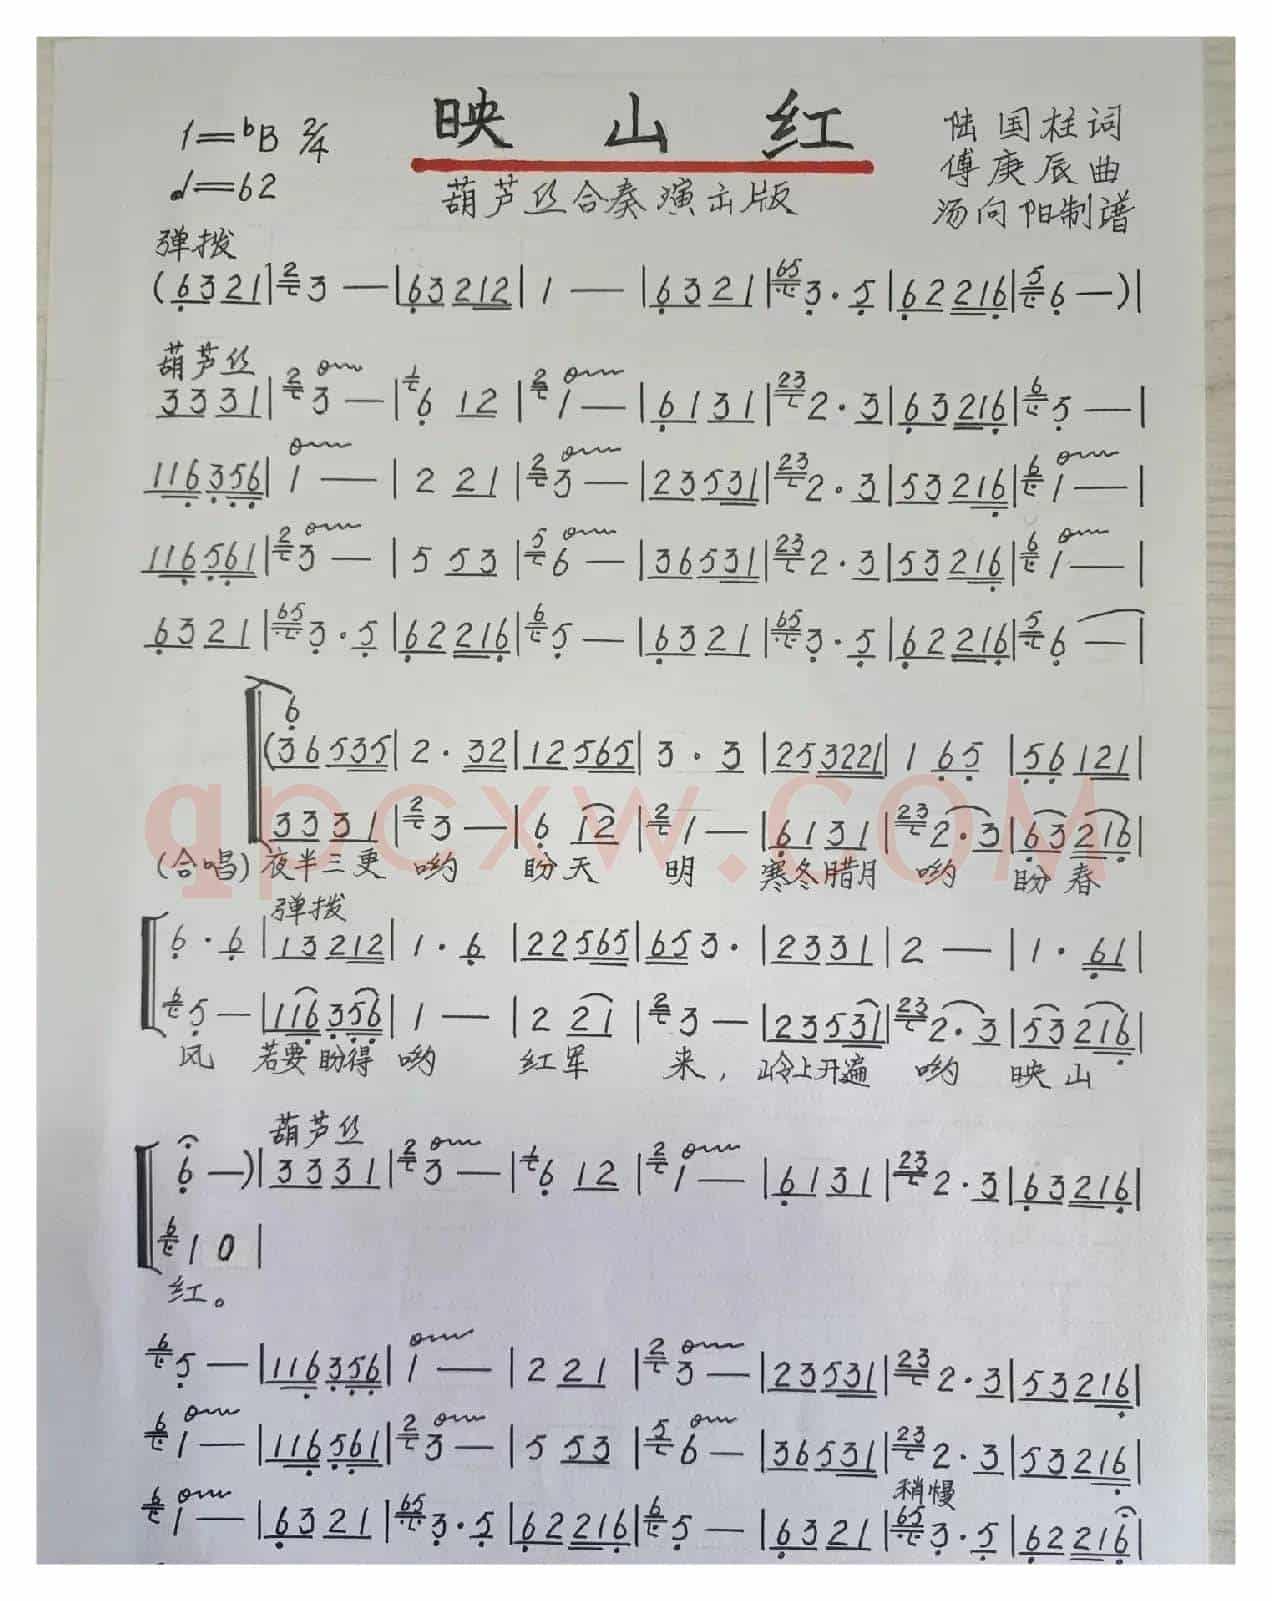 映山红
1=bB 2/4
♩=62
葫芦丝合奏演出版
陆国柱词
傅庚辰曲
汤向阳制谱
弹拨
(6321|3 —|63212|1 —|6321|3·5|62216|6 —)|
葫芦丝
3331|3 —|6 12|1 —|6131|2·3|63216|5 —|
116356|1 —|2 21|3 —|23531|2·3|53216|1 —|
116561|3 —|5 53|6 —|36531|2·3|53216|1 —|
6321|3·5|62216|5 —|6321|3·5|62216|6 —|
6
(36535|2·32|12565|3·3|253221|1 65|56121|
3331|3 —|6 12|1 —|6131|2·3|63216|
(合唱) 夜半三更 哟 盼天 明 寒冬腊月 哟 盼春
弹拨
6·6|13212|1·6|22565|653·|2331|2 —|1·61|
5 —|116356|1 —|2 21|3 —|23531|2·3|53216|
风 若要盼得 哟 红军 来, 岭上开遍 哟 映山
葫芦丝
6 —)|3331|3 —|6 12|1 —|6131|2·3|63216|
1 0|
红。
5 —|116356|1 —|2 21|3 —|23531|2·3|53216|
1 —|116561|3 —|5 53|6 —|36531|2·3|53216|
稍慢
1 —|6321|3·5|62216|5 —|6321|3·5|62216|
qpcxw.com